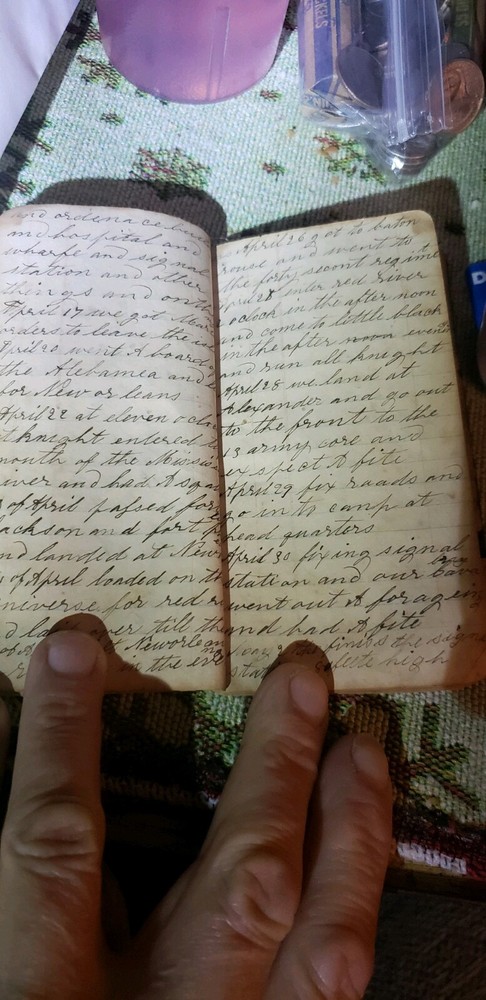 and ordenace
and hospital and
wharfe and signal
station and other
things and on the
April 17 we got
orders to leave the
April 20 went A board
the Alebamea and
for New or leans
April 22 at eleven o cloc
at knight entered
mouth of the Missis
river and had A
of April passed for
Jackson and fort p
and landed at New
of April loaded on th
universe for red r
over till th
Neworlean
as the eve
April 26 got to baton
rouse and went to
the forty secont regime
April 28 enter red river
o clock in the after noon
and come to little black
in the after noon
and run all knight
April 28 we land at
Alexander and go out
to the front to the
13 army core and
ex spect A fite
April 29 fix roads and
go in to camp at
head quarters
April 30 fixing signal
station and our boys
went out A forageing
and had A fite
the sign